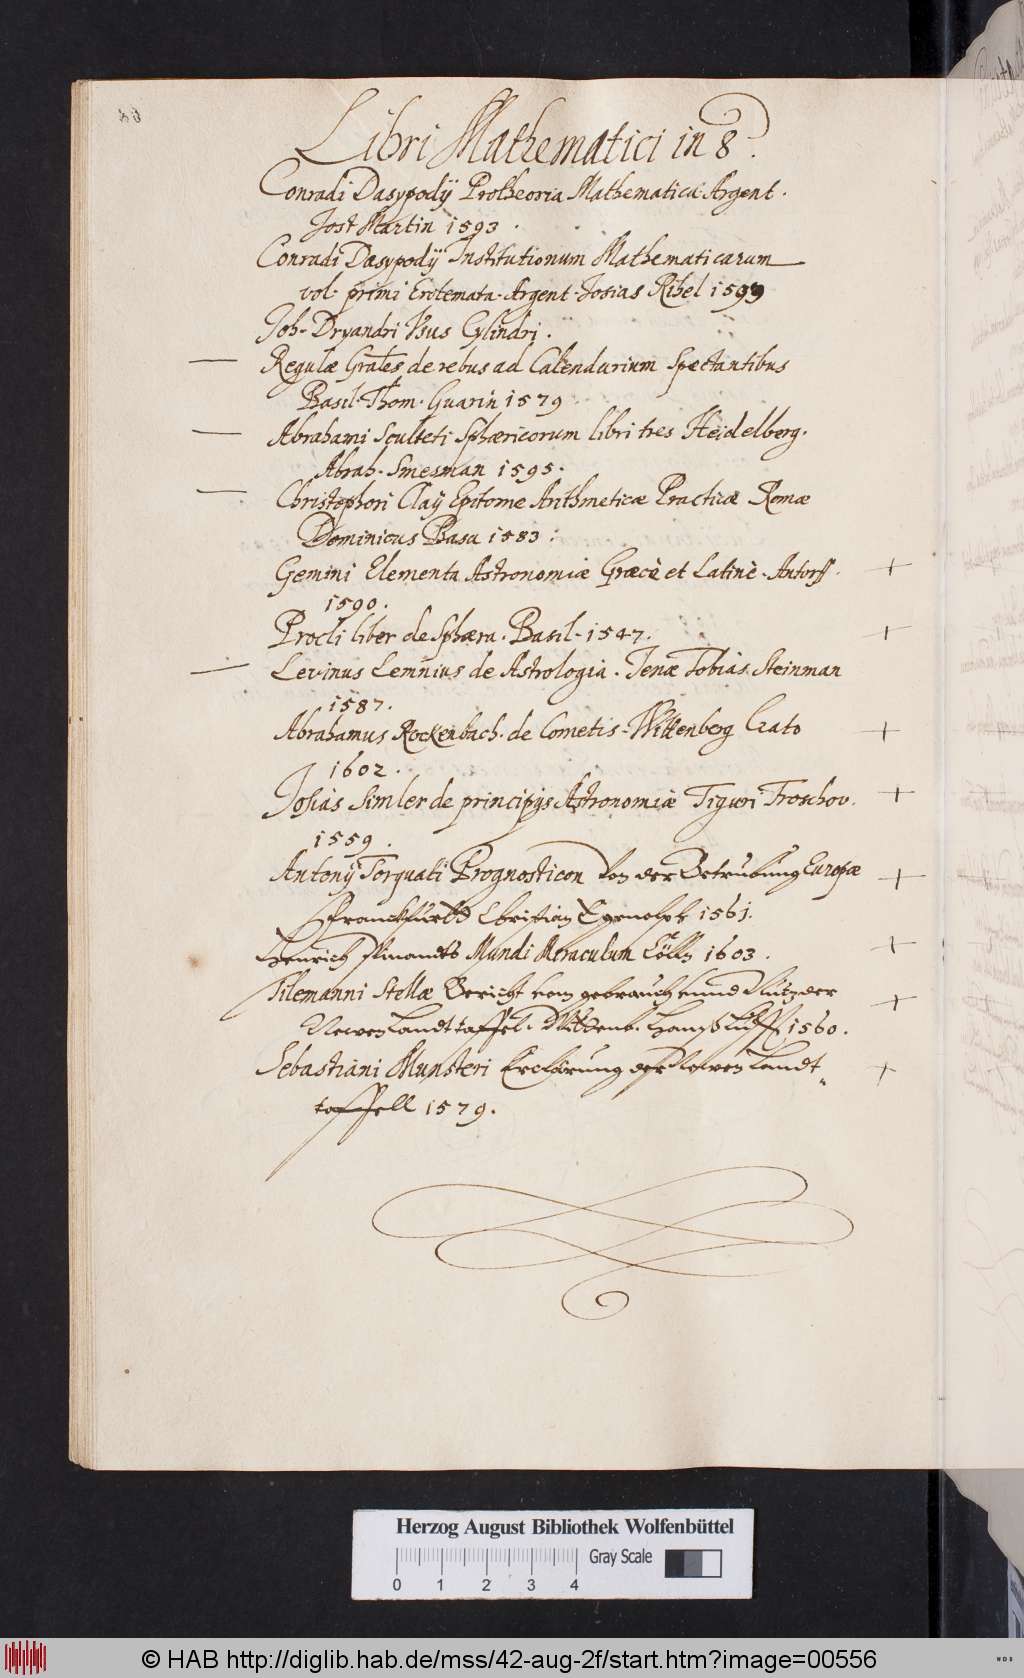 Libri Mathematici in 8º.
Conradi Dasypodÿ Protheoria Mathematica Argent.
Jost Martin 1593.
Conradi Dasypodÿ Institutionum Mathematicarum
vol. primi Erotemata. Argent. Josias Rihel 1593
Joh. Dryandri Usus Cylindri.
Regulæ Grales de rebus ad Calendarium Spectantibus
Basil. Thom. Guarin 1579
Abrahami Sculteti Sphæricorum libri tres Heidelberg.
Abrah. Smesman 1595.
Christophori Claÿ Epitome Arithmeticæ Practicæ Romæ
Dominicus Basa 1583.
Gemini Elementa Astronomiæ Græcè et Latinè. Antorff.
1590.
Procli liber de Sphæra. Basil. 1547.
Levinus Lemnius de Astrologia. Jenæ Tobias Steinman
1587.
Abrahamus Rockenbach. de Cometis. Wittenberg Crato
1602.
Josias Simler de principÿs Astronomiæ Tiguri Froschov.
1559.
Antonÿ Torquati Prognosticon Von der Betrubung Europæ
Franckfurtt Christian Egenolph 1561.
Henrich Mundi Miraculum Cölln 1603.
Tilemanni Stellæ Bericht vom gebrauch unnd Nutz der
Newen Landttaffel. Wittenb. Hanß Lufft 1560.
Sebastiani Munsteri Erclärung der Newen Landt
taffell 1579.
Herzog August Bibliothek Wolfenbüttel
Gray Scale
0 1 2 3 4
© HAB http://diglib.hab.de/mss/42-aug-2f/start.htm?image=00556